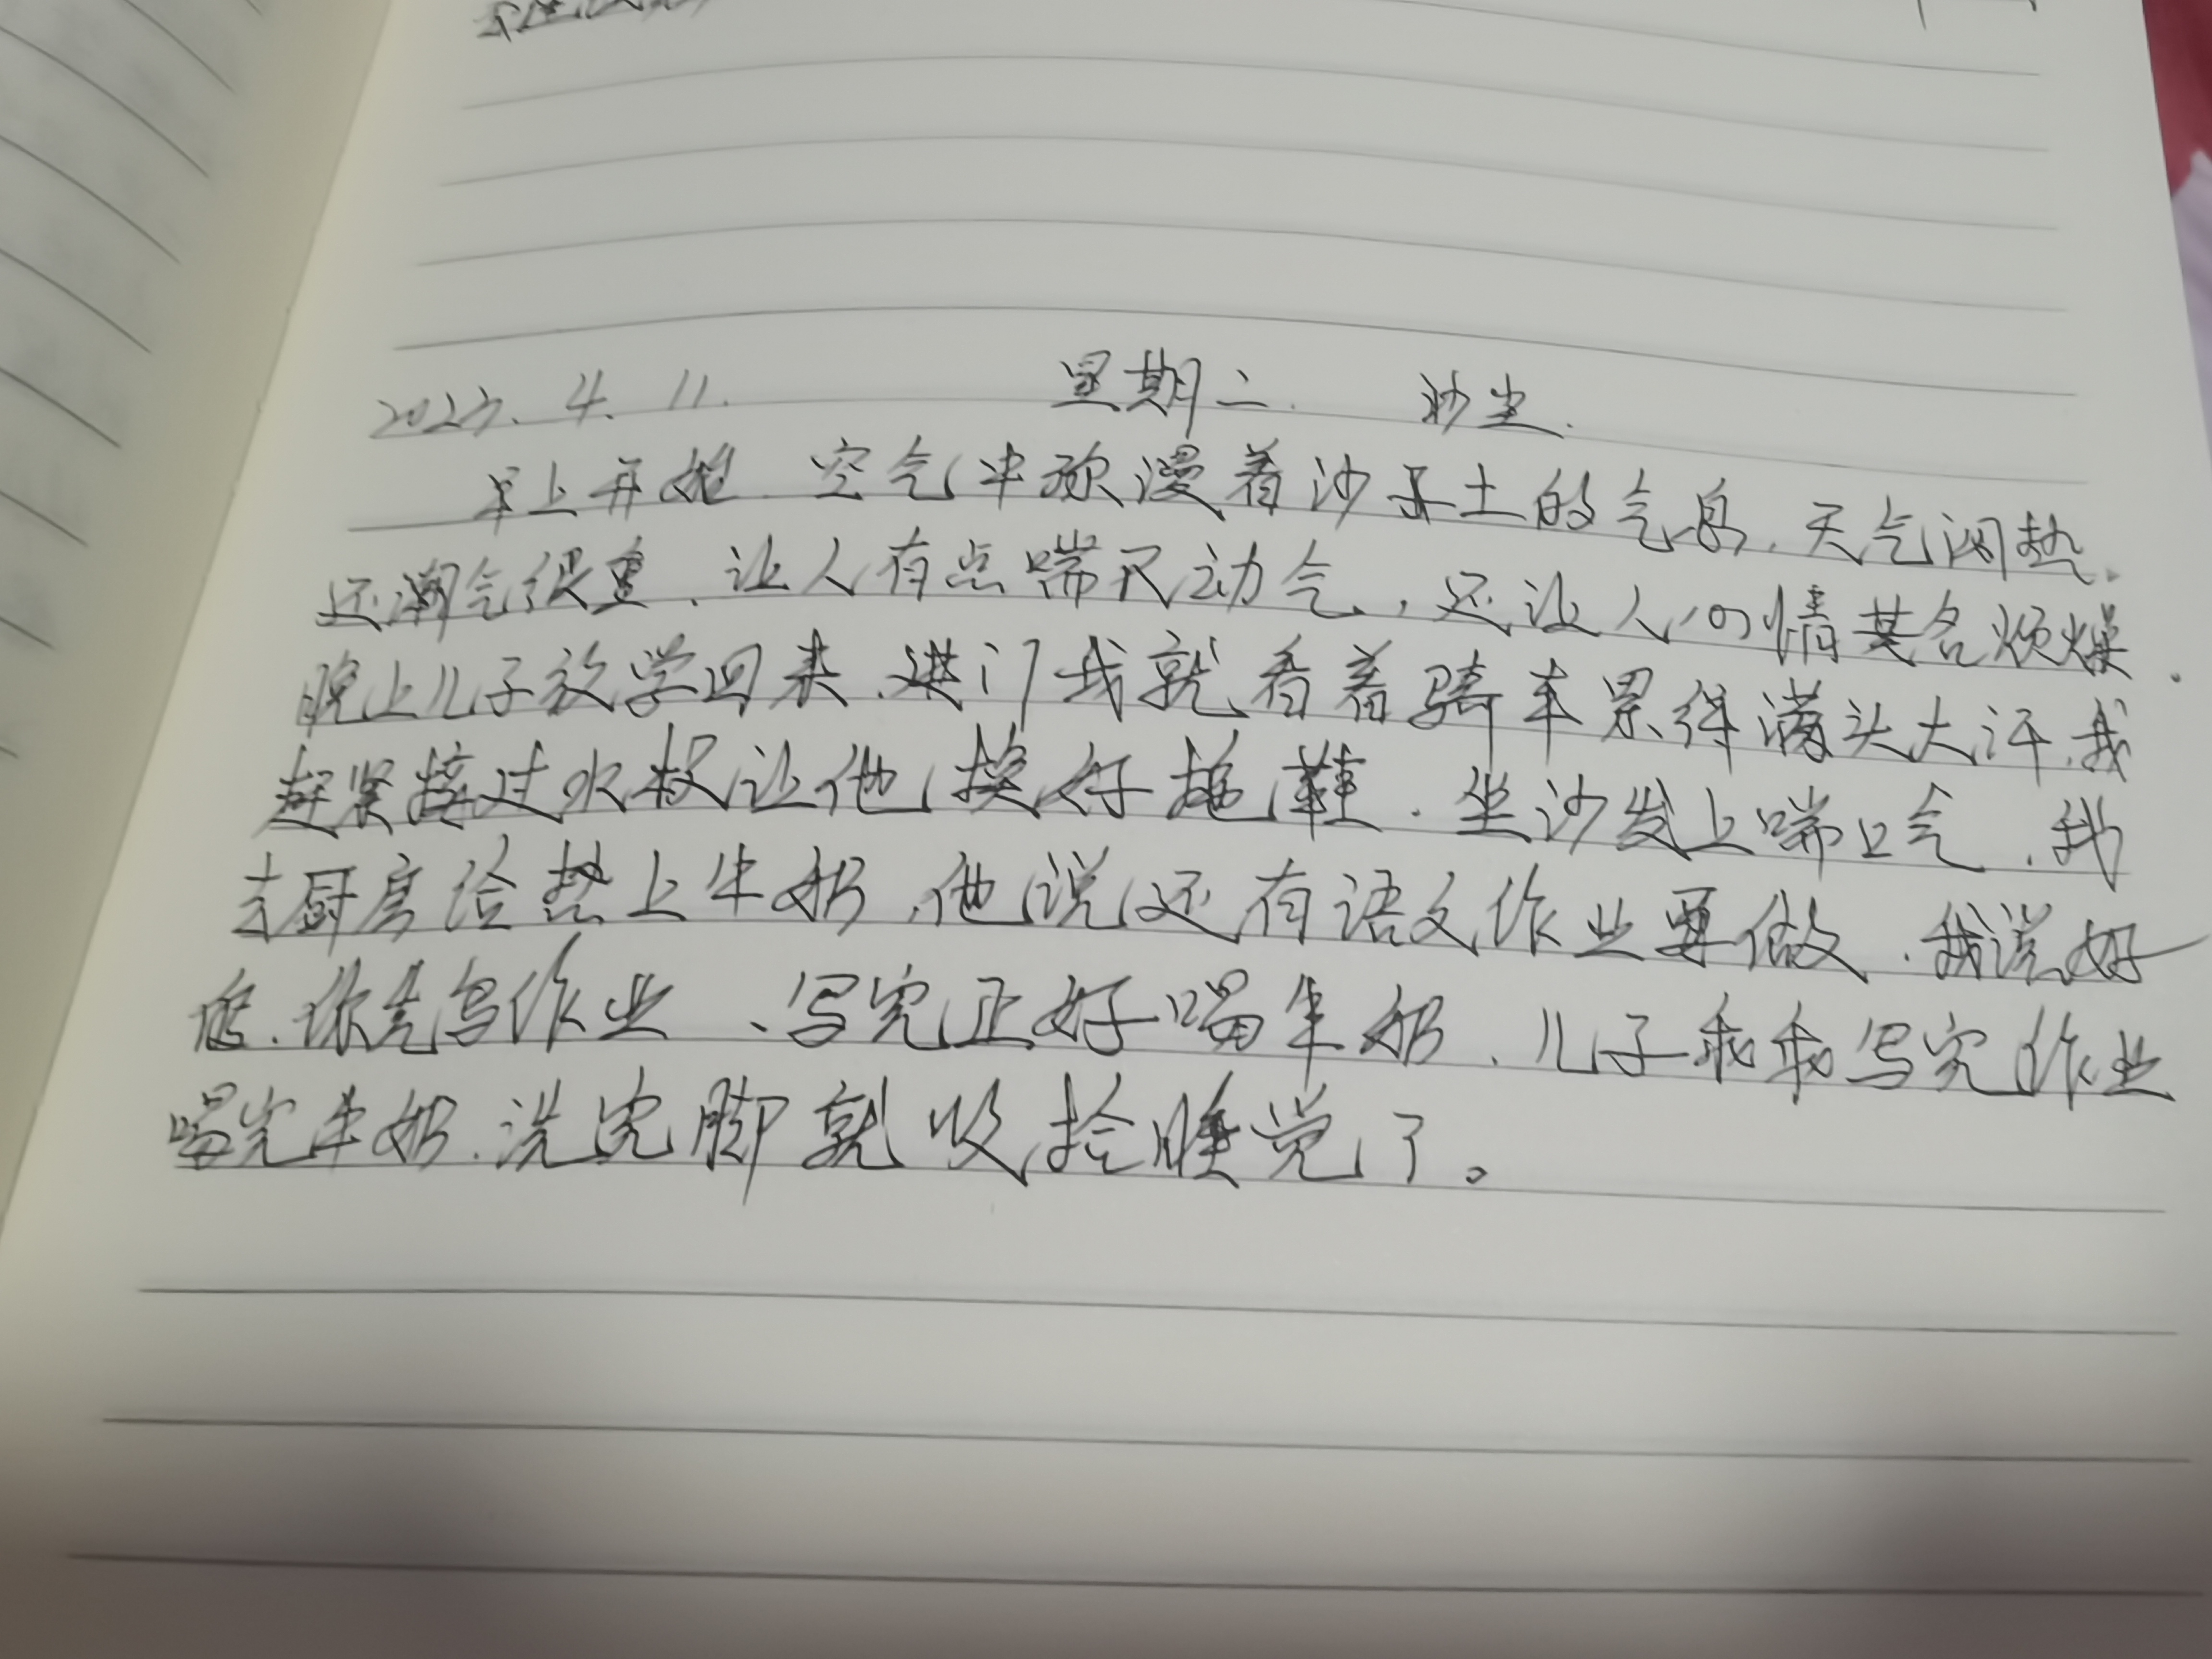 2023.4.11. 星期二. 沙尘.
早上开始.空气中弥漫着沙尘土的气息,天气闷热.
还潮气很重,让人有点喘不动气,,还让人心情莫名烦燥.
晚上儿子放学回来,进门我就看着骑车累得满头大汗,我
赶紧接过水杯让他换好拖鞋.坐沙发上喘口气,我
去厨房给热上牛奶,他说还有语文作业要做,我说好
您.你先写作业、写完正好喝牛奶,儿子乖乖写完作业
喝完牛奶.洗完脚就收拾睡觉了。